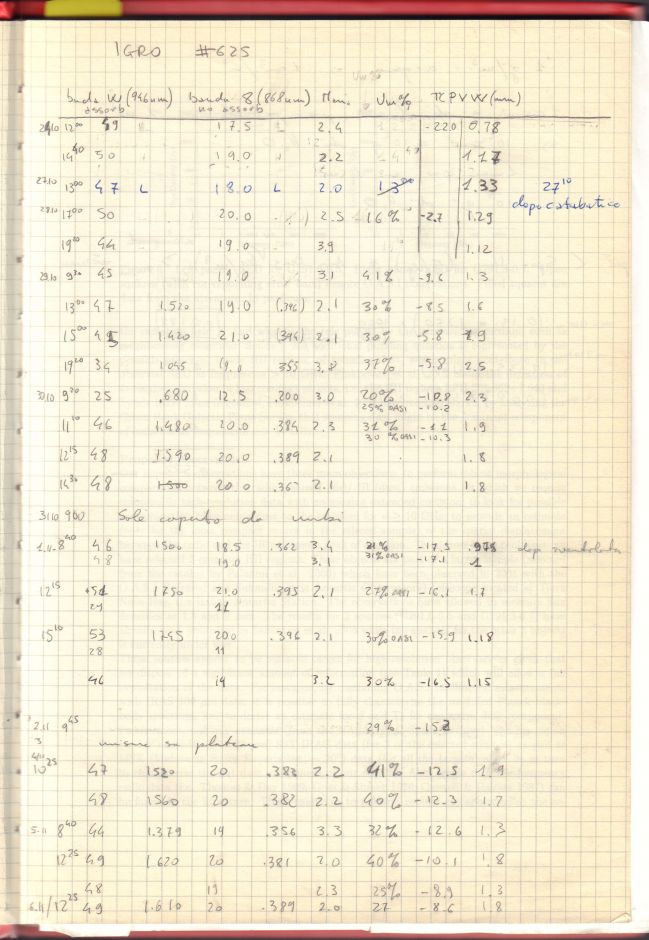 IGRO #625
banda W (946um) banda 8 (868um) Um% T°C PWV (mm)
assorb no assorb
24.10 12⁰⁰ 49 17.5 2.4 -22.0 0.78
14⁴⁰ 50 19.0 2.2 1.17
27.10 13⁰⁰ 47 L 18.0 L 2.0 1.33 27¹⁰
28.10 17⁰⁰ 50 20.0 2.5 16% -2.7 1.29
19⁰⁰ 44 19.0 3.9 1.12
29.10 9³⁰ 45 19.0 3.1 41% -9.6 1.3
13⁰⁰ 47 1.520 19.0 (.396) 2.1 30% -8.5 1.6
15⁰⁰ 45 1.420 21.0 (394) 2.1 30% -5.8 1.9
19²⁰ 34 1.045 19.0 355 3.8 37% -5.8 2.5
30.10 9²⁰ 25 .680 12.5 .200 3.0 20% -10.8 2.3
25% OASI -10.2
11¹⁰ 46 1.480 20.0 .384 2.3 31% -11 1.9
30% OASI -10.3
12¹⁵ 48 1.590 20.0 .389 2.1 1.8
14³⁰ 48 1.500 20.0 .367 2.1 1.8
31.10 900 Sole coperto da nubi
1.11 8⁴⁰ 46 1500 18.5 .362 3.4 31% -17.5 .975 dopo
48 19.0 3.1 31% OASI -17.1 1
12¹⁵ 51 1750 21.0 .395 2.1 27% OASI -16.1 1.7
29 11
15¹⁰ 53 1745 20.0 .396 2.1 30% OASI -15.9 1.18
28 11
46 19 3.2 30% -16.5 1.15
2.11 9⁴⁵ 29% -15.2
3 misure su plateau
4.11 10²⁵ 47 1520 20 .383 2.2 41% -12.5 1.9
48 1560 20 .382 2.2 40% -12.3 1.7
5.11 8⁴⁰ 44 1.379 19 .356 3.3 32% -12.6 1.3
12²⁵ 49 1.620 20 .381 2.0 40% -10.1 1.8
48 19 2.3 25% -8.9 1.3
6.11/12²⁵ 49 1.610 20 .389 2.0 27 -8.6 1.8